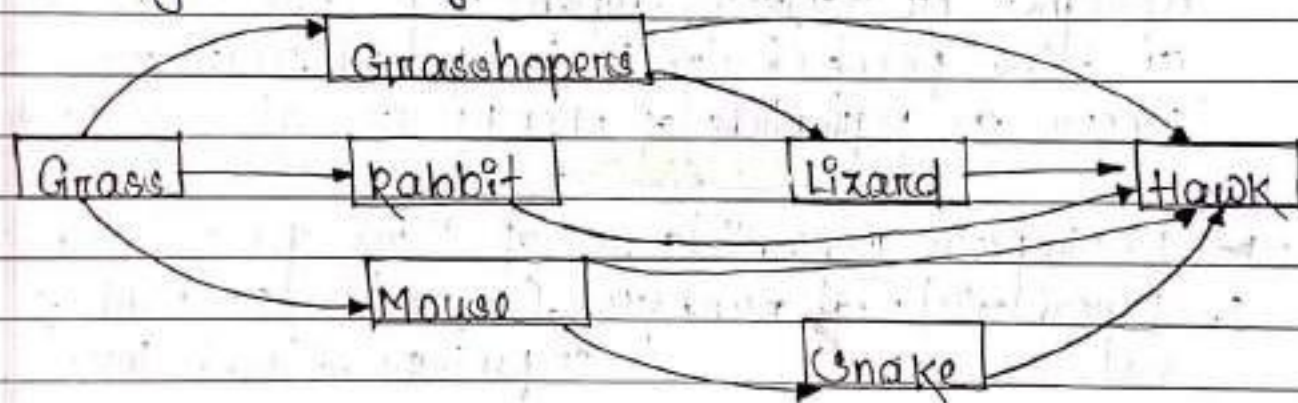 Grasshopers
Grass Rabbit Lizard Hawk
Mouse
Snake